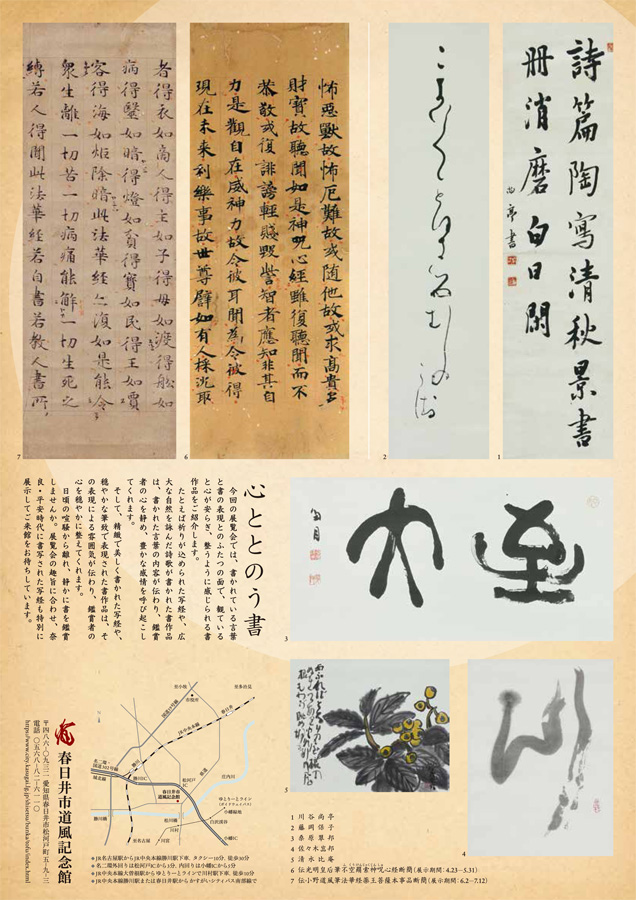 詩篇陶寫清秋景書
冊消磨白日閑
尚亭書
1
2
怖惡獸故怖厄難故或隨他故或求高貴多
財寶故聽聞如是神呪心經雖復聽聞而不
恭敬或復誹謗輕賤毀訾智者應知非其自
力是觀自在威神力故令彼耳聞為令彼得
現在未來利樂事故世尊譬如有人採沉取
6
者得衣如商人得主如子得母如渡得船如
病得醫如暗得燈如貧得寶如民得王如賈
客得海如炬除暗此法華經亦復如是能令
衆生離一切苦一切病痛能解一切生死之
縛若人得聞此法華經若自書若教人書所
7
至大
3
心ととのう書
今回の展覧会では、書かれている言葉
と書の表現とのふたつの面で、観ている
と心が安らぎ、整うように感じられる書
作品をご紹介します。
たとえば祈りが込められた写経や、広
大な自然を詠んだ詩歌が書かれた書作品
は、書かれた言葉の内容が伝わり、鑑賞
者の心を静め、豊かな感情を呼び起こし
てくれます。
そして、精緻で美しく書かれた写経や、
穏やかな筆致で表現された書作品は、そ
の表現による雰囲気が伝わり、鑑賞者の
心を穏やかに整えてくれます。
日頃の喧騒から離れ、静かに書を鑑賞
しませんか。展覧会の趣旨に合わせ、奈
良・平安時代に書写された写経も特別に
展示してご来館をお待ちしています。
4
5
1 川谷尚亭
2 藤岡保子
3 桑原翠邦
4 佐々木泰南
5 清水比庵
6 伝光明皇后筆不空羂索神呪心経断簡(展示期間:4.23~5.31)
7 伝小野道風筆法華経薬王菩薩本事品断簡(展示期間:6.2~7.12)
至小牧
至多治見
市役所
国道19号線
春日井
JR中央本線
名二環・
国道302号線
勝川
勝川IC
松河戸IC
城北線
春日井市
道風記念館
庄内川
ゆとりーとライン
(ガイドウェイバス)
小幡緑地
勝川橋
松川橋
白沢渓谷
川村
川宮
至名古屋
小幡IC
春日井市道風記念館
〒四八六-〇九三二 愛知県春日井市松河戸町五-九-三
電話 〇五六八-八二-六一一〇
*JR名古屋駅からJR中央本線勝川駅下車、タクシー10分、徒歩30分
*名二環外回りは松河戸ICから1分、内回りは小幡ICから5分
*JR中央本線大曽根駅からゆとりーとラインで川村駅下車、徒歩10分
*JR中央本線勝川駅または春日井駅からかすがいシティバス南部線で